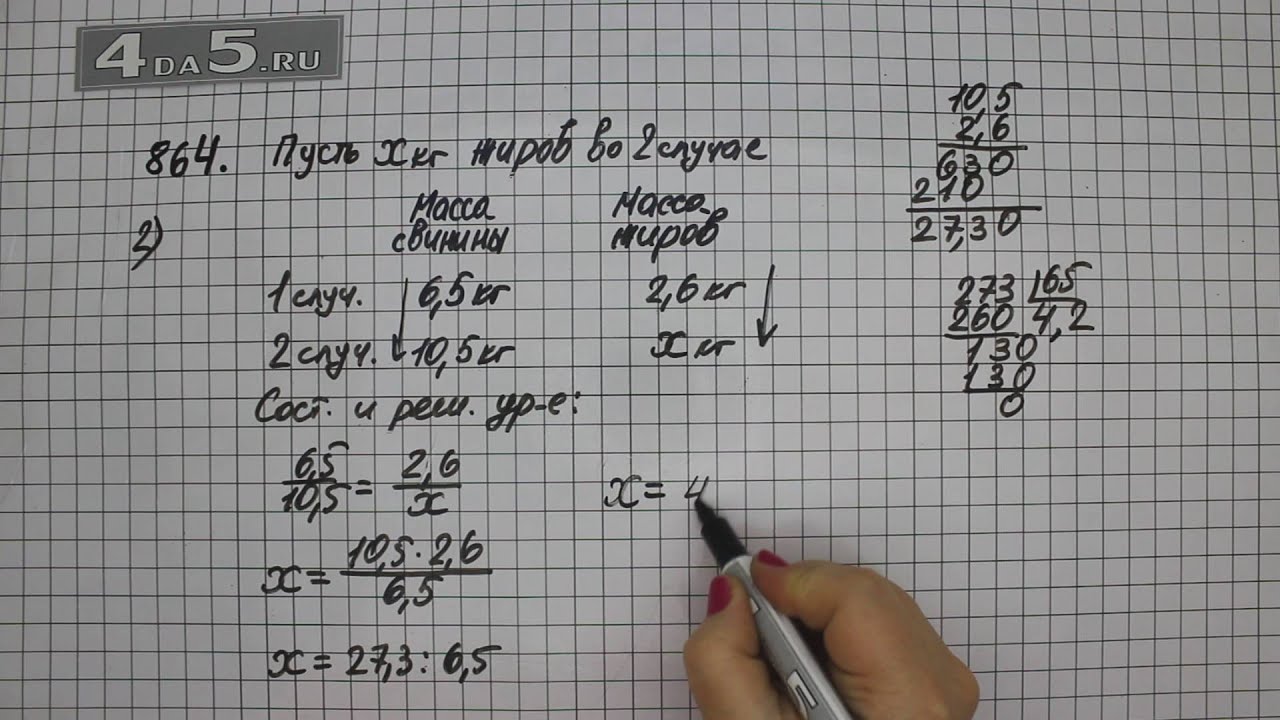 4DA5.RU
864. Пусть x кг жиров во 2 случае
2)
Масса свинины
Масса жиров
1 случ. 6,5 кг 2,6 кг
2 случ. 10,5 кг x кг
Сост. и реш. ур-е:
6,5/10,5 = 2,6/x
x = 10,5 · 2,6/6,5
x = 27,3 : 6,5
x = 4
10,5
2,6
630
210
27,30
273 65
260 4,2
130
130
0